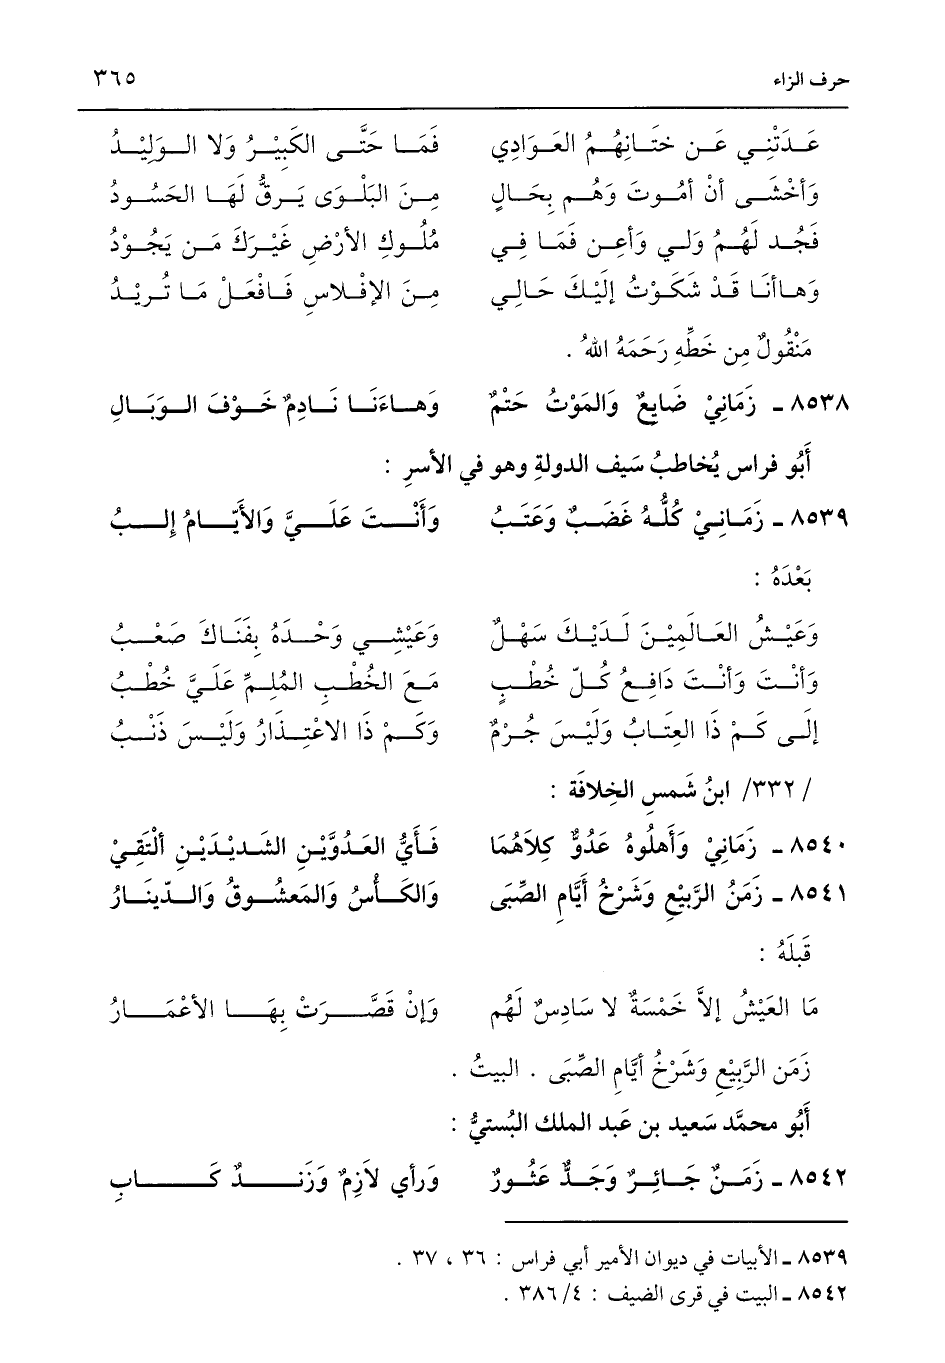 حرف الزاء ٣٦٥
عَدَتْنِي عَن خِتَانِهُمُ العَوَادِي فَمَا حَتَّى الكَبِيْرُ وَلا الوَلِيْدُ
وَأخْشَى أنْ أمُوتَ وَهُم بِحَالٍ مِنَ البَلْوَى يَرِقُّ لَهَا الحَسُودُ
فَجُد لَهُمُ وَلِي وَأعِن فَمَا فِي مُلُوكِ الأرْضِ غَيْرَكَ مَن يَجُوْدُ
وَهاأنَا قَدْ شَكَوْتُ إلَيْكَ حَالِي مِنَ الإفْلاسِ فَافْعَلْ مَا تُرِيْدُ
مَنْقُولٌ مِن خَطِّهِ رَحَمَهُ اللهُ .
٨٥٣٨ ـ زَمَانِيْ ضَايعٌ وَالمَوْتُ حَتْمٌ وَهاءَنَا نَادِمٌ خَوْفَ الوَبَالِ
أبُو فراس يُخاطبُ سَيف الدولةِ وهو في الأسرِ :
٨٥٣٩ ـ زَمَانِيْ كُلُّهُ غَضَبٌ وَعَتَبُ وَأَنْتَ عَلَيَّ وَالأيَّامُ إلبُ
بَعْدَهُ :
وَعَيْشُ العَالَمِيْنَ لَدَيْكَ سَهْلٌ وَعَيْشِي وَحْدَهُ بِفَنَاكَ صَعْبُ
وَأنْتَ وَأنْتَ دَافِعُ كُلّ خُطْبٍ مَعَ الخُطْبِ المُلِمِّ عَلَيَّ خُطْبُ
إلى كَمْ ذَا العِتَابُ وَلَيْسَ جُرْمٌ وَكَمْ ذَا الاعْتِذَارُ وَلَيْسَ ذَنْبُ
/ ٣٣٢/ ابنُ شَمسِ الخِلافَة :
٨٥٤٠ ـ زَمَانِيْ وَأهلُوهُ عَدُوٌّ كِلاَهُمَا فَأيُّ العَدُوَّيْنِ الشَدِيْدَيْنِ ألْتَقِيْ
٨٥٤١ ـ زَمَنُ الرَّبِيْعِ وَشَرْخُ أيَّامِ الصِّبَى وَالكَأسُ وَالمَعشُوقُ وَالدِّينَارُ
قَبلَهُ :
مَا العَيْشُ إلاَّ خَمْسَةٌ لا سَادِسٌ لَهُم وَإنْ قَصَّرَتْ بِهَا الأعْمَارُ
زَمَن الرَّبِيْعِ وَشَرْخُ أيَّامِ الصِّبَى . البيتُ .
أبُو محمَّد سَعيد بن عَبد الملك البُستيُّ :
٨٥٤٢ ـ زَمَنٌ جَائِرٌ وَجَدٌّ عَثُورٌ وَرأي لاَزِمٌ وَزَنَدٌ كَابِ
٨٥٣٩ ـ الأبيات في ديوان الأمير أبي فراس : ٣٦ ، ٣٧ .
٨٥٤٢ ـ البيت في قرى الضيف : ٤/ ٣٨٦ .